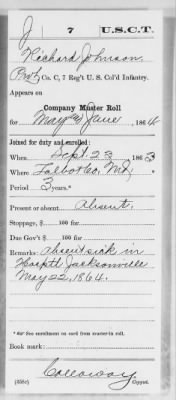 J | 7 | U.S.C.T.
Richard Johnson
Pvt, Co. C, 7 Reg't U. S. Col'd Infantry.
Appears on
Company Muster Roll
for May and June, 1864.
Joined for duty and enrolled:
When Sept. 23, 1863
Where Talbot Co. Md.
Period 3 years.*
Present or absent Absent.
Stoppage, $ 100 for
Due Gov't $ 100 for
Remarks: Absent sick in
Hospt'l Jacksonville
May 22, 1864.
*See enrollment on card from muster-in roll.
Book mark:
Calloway
(358c) Copyist.